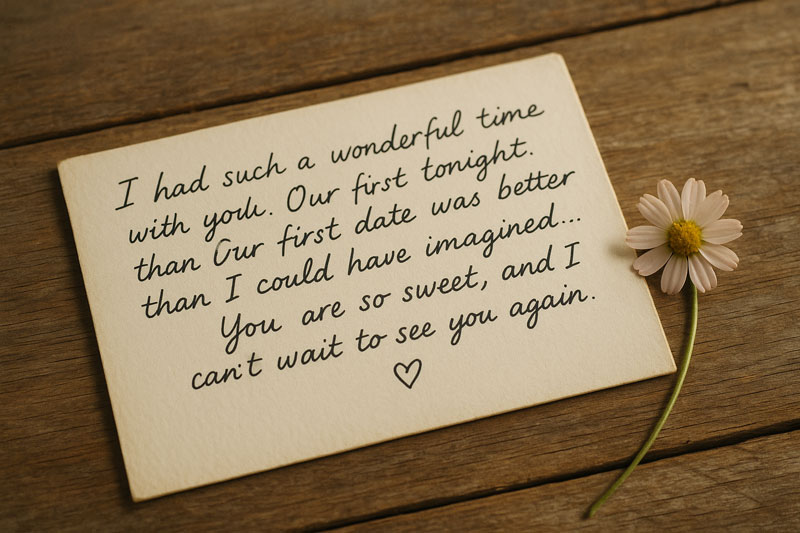 I had such a wonderful time
with you. Our first tonight.
than Our first date was better
than I could have imagined...
You are so sweet, and I
can't wait to see you again.
♡